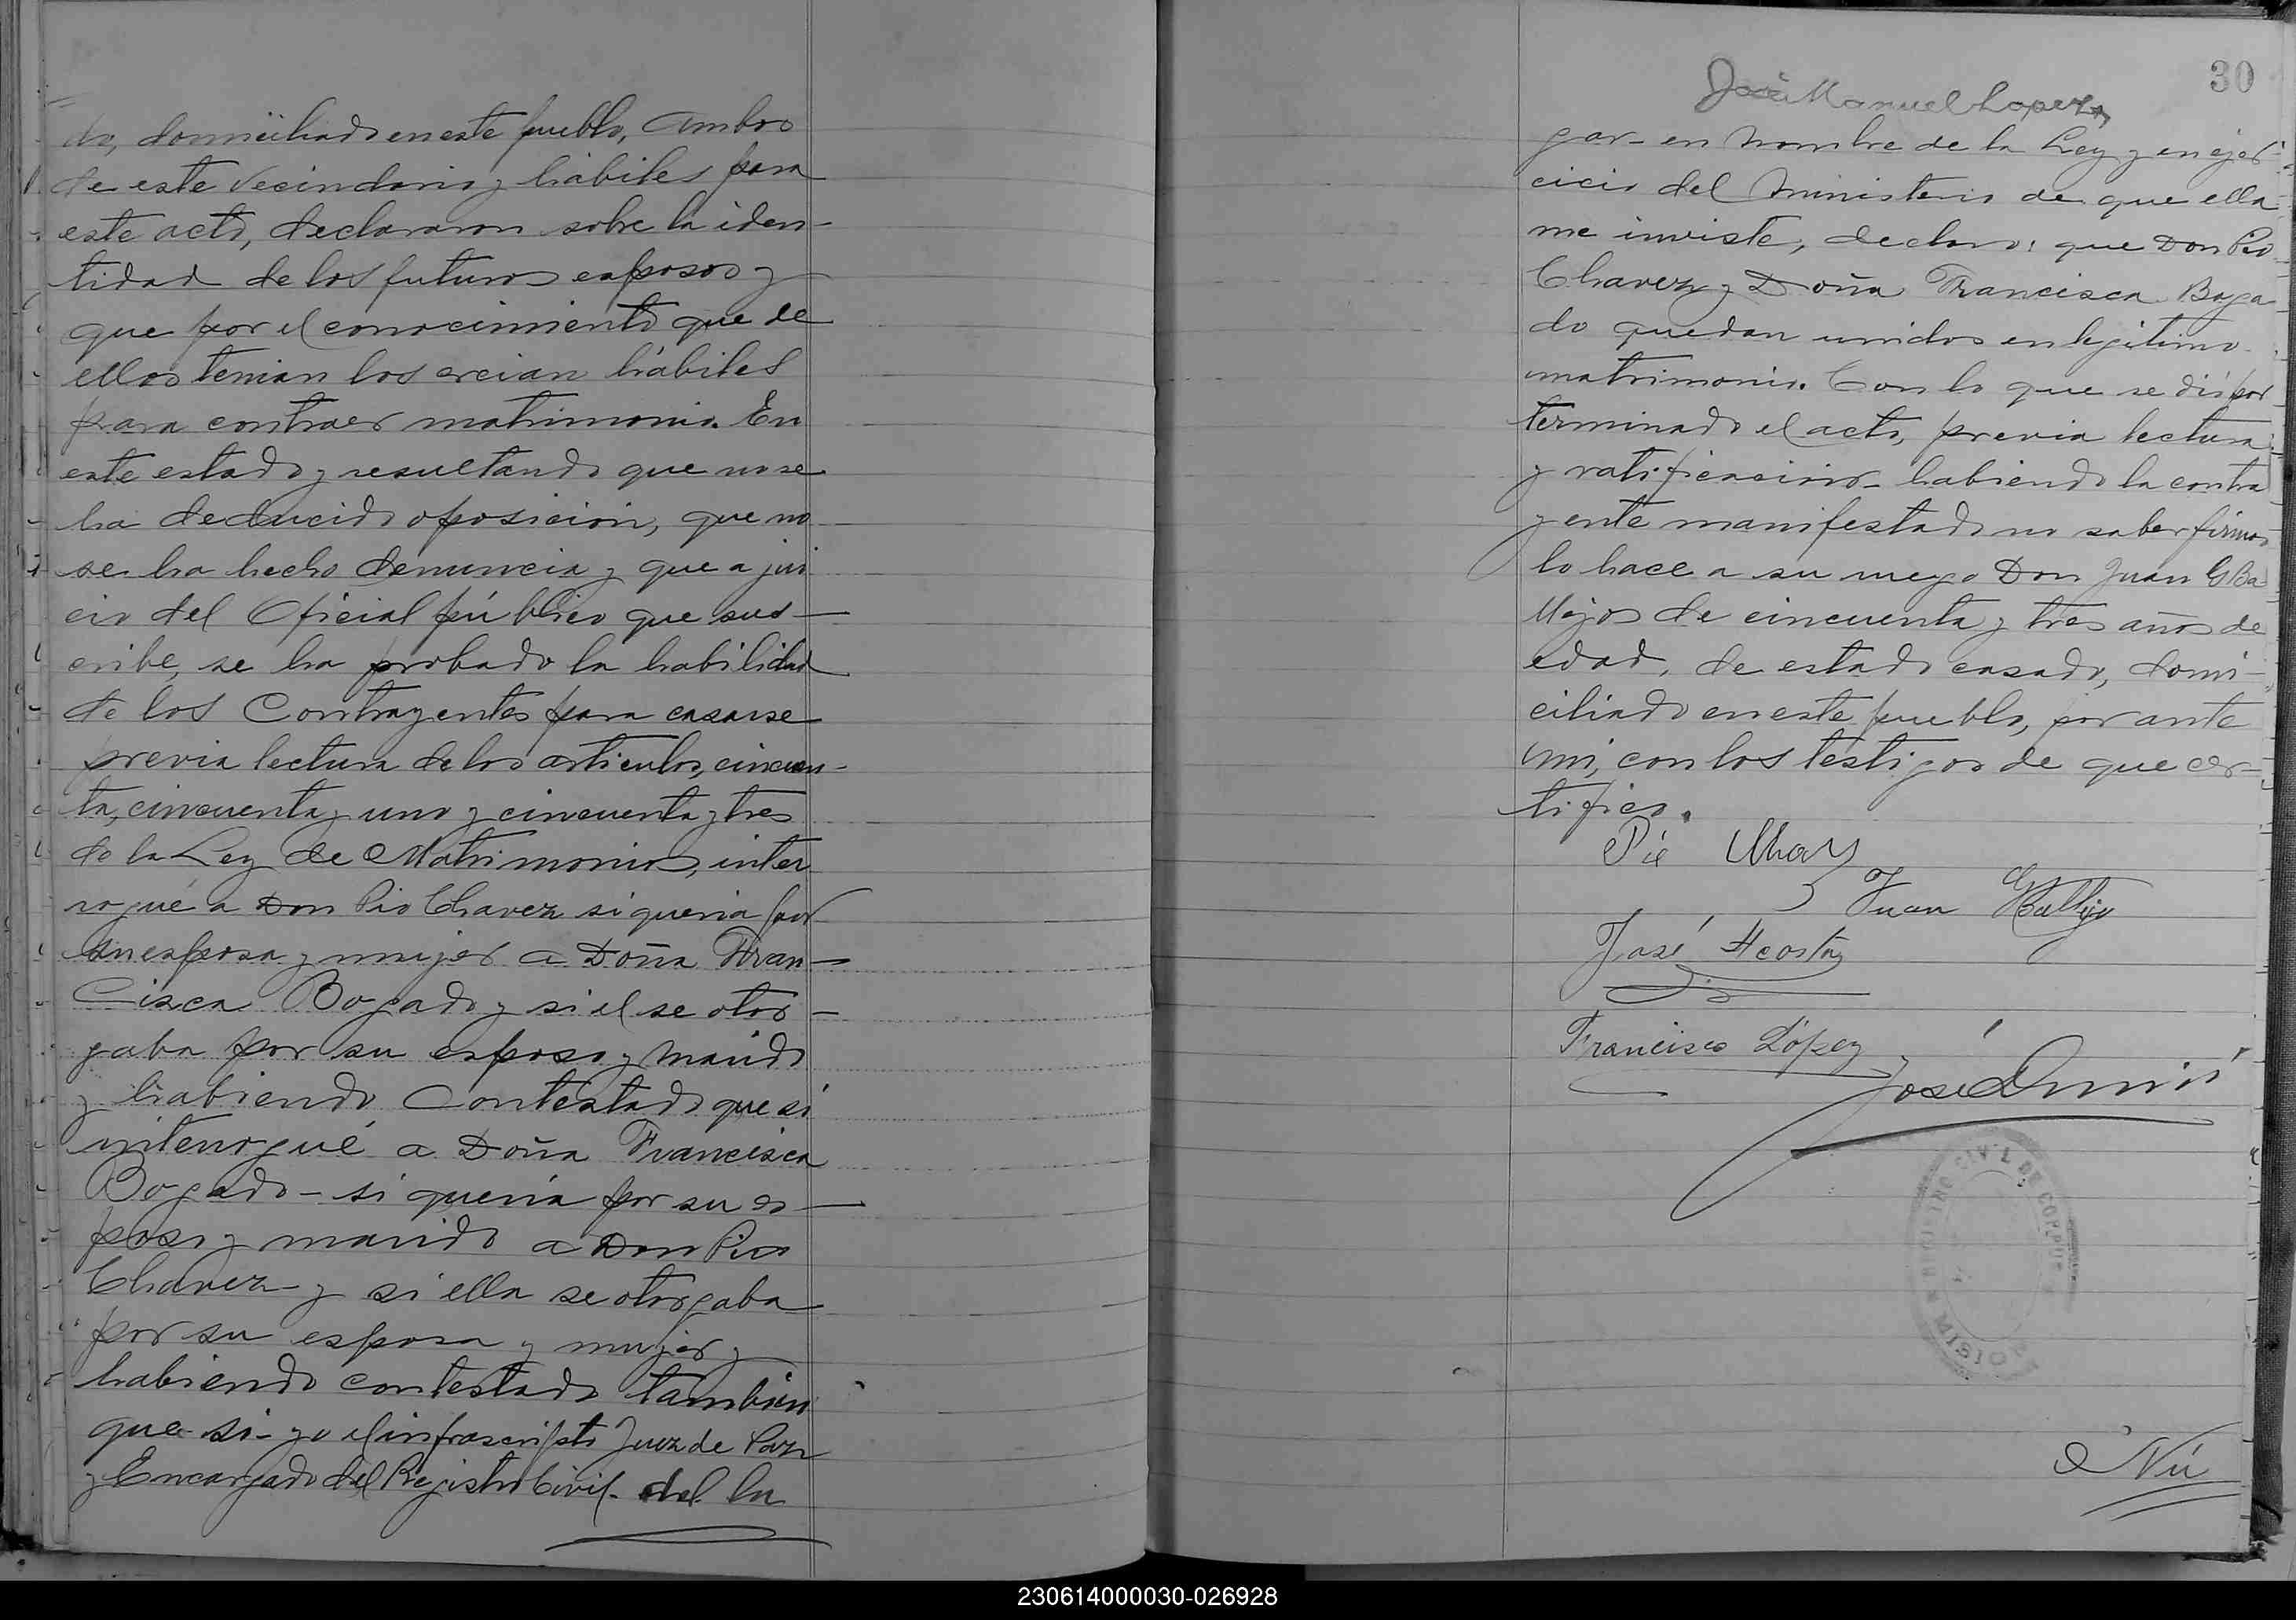 do, domiciliado en este pueblo, ambos
de este vecindario y hábiles para
este acto, declararon sobre la iden-
tidad de los futuros esposos y
que por el conocimiento que de
ellos tenian los creian hábiles
para contraer matrimonio. En
este estado y resultando que no se
ha deducido oposición, que no
se ha hecho denuncia y que a jui
cio del Oficial público que sus-
cribe, se ha probado la habilidad
de los Contrayentes para casarse
previa lectura de los articulos, cincuen-
ta, cincuenta y uno y cincuenta y tres
de la Ley de Matrimonios, inter
rogué a Don Pio Chavez si queria por
su esposa y mujer a Doña Fran-
cisca Bogado y si el se otor-
gaba por su esposo y marido
y habiendo Contestado que si
interrogué a Doña Francisca
Bogado - si queria por su es-
poso y marido a Don Pio
Chavez y si ella se otorgaba
por su esposa y mujer y
habiendo contestado tambien
que si - yo el infrascripto Juez de Paz
y Encargado del Registro Civil - del lu
30
José Manuel Lopez
gar - en nombre de la Ley y en ejer-
cicio del ministerio de que ella
me inviste, declaro: que Don Pio
Chavez y Doña Francisca Boga
do quedan unidos en legitimo
matrimonio. Con lo que se dió por
terminado el acto, previa lectura
y ratificacion - habiendo la contra
yente manifestado no saber firmar
lo hace a su ruego Don Juan G Ba
llejos de cincuenta y tres años de
edad, de estado casado, domi-
ciliado en este pueblo, por ante
mi, con los testigos de que cer-
tifico.
Pio
Juan G Ballejo
José Acosta
Francisco López
José
CIVIL DE CORPUS
MISIONES
230614000030-026928